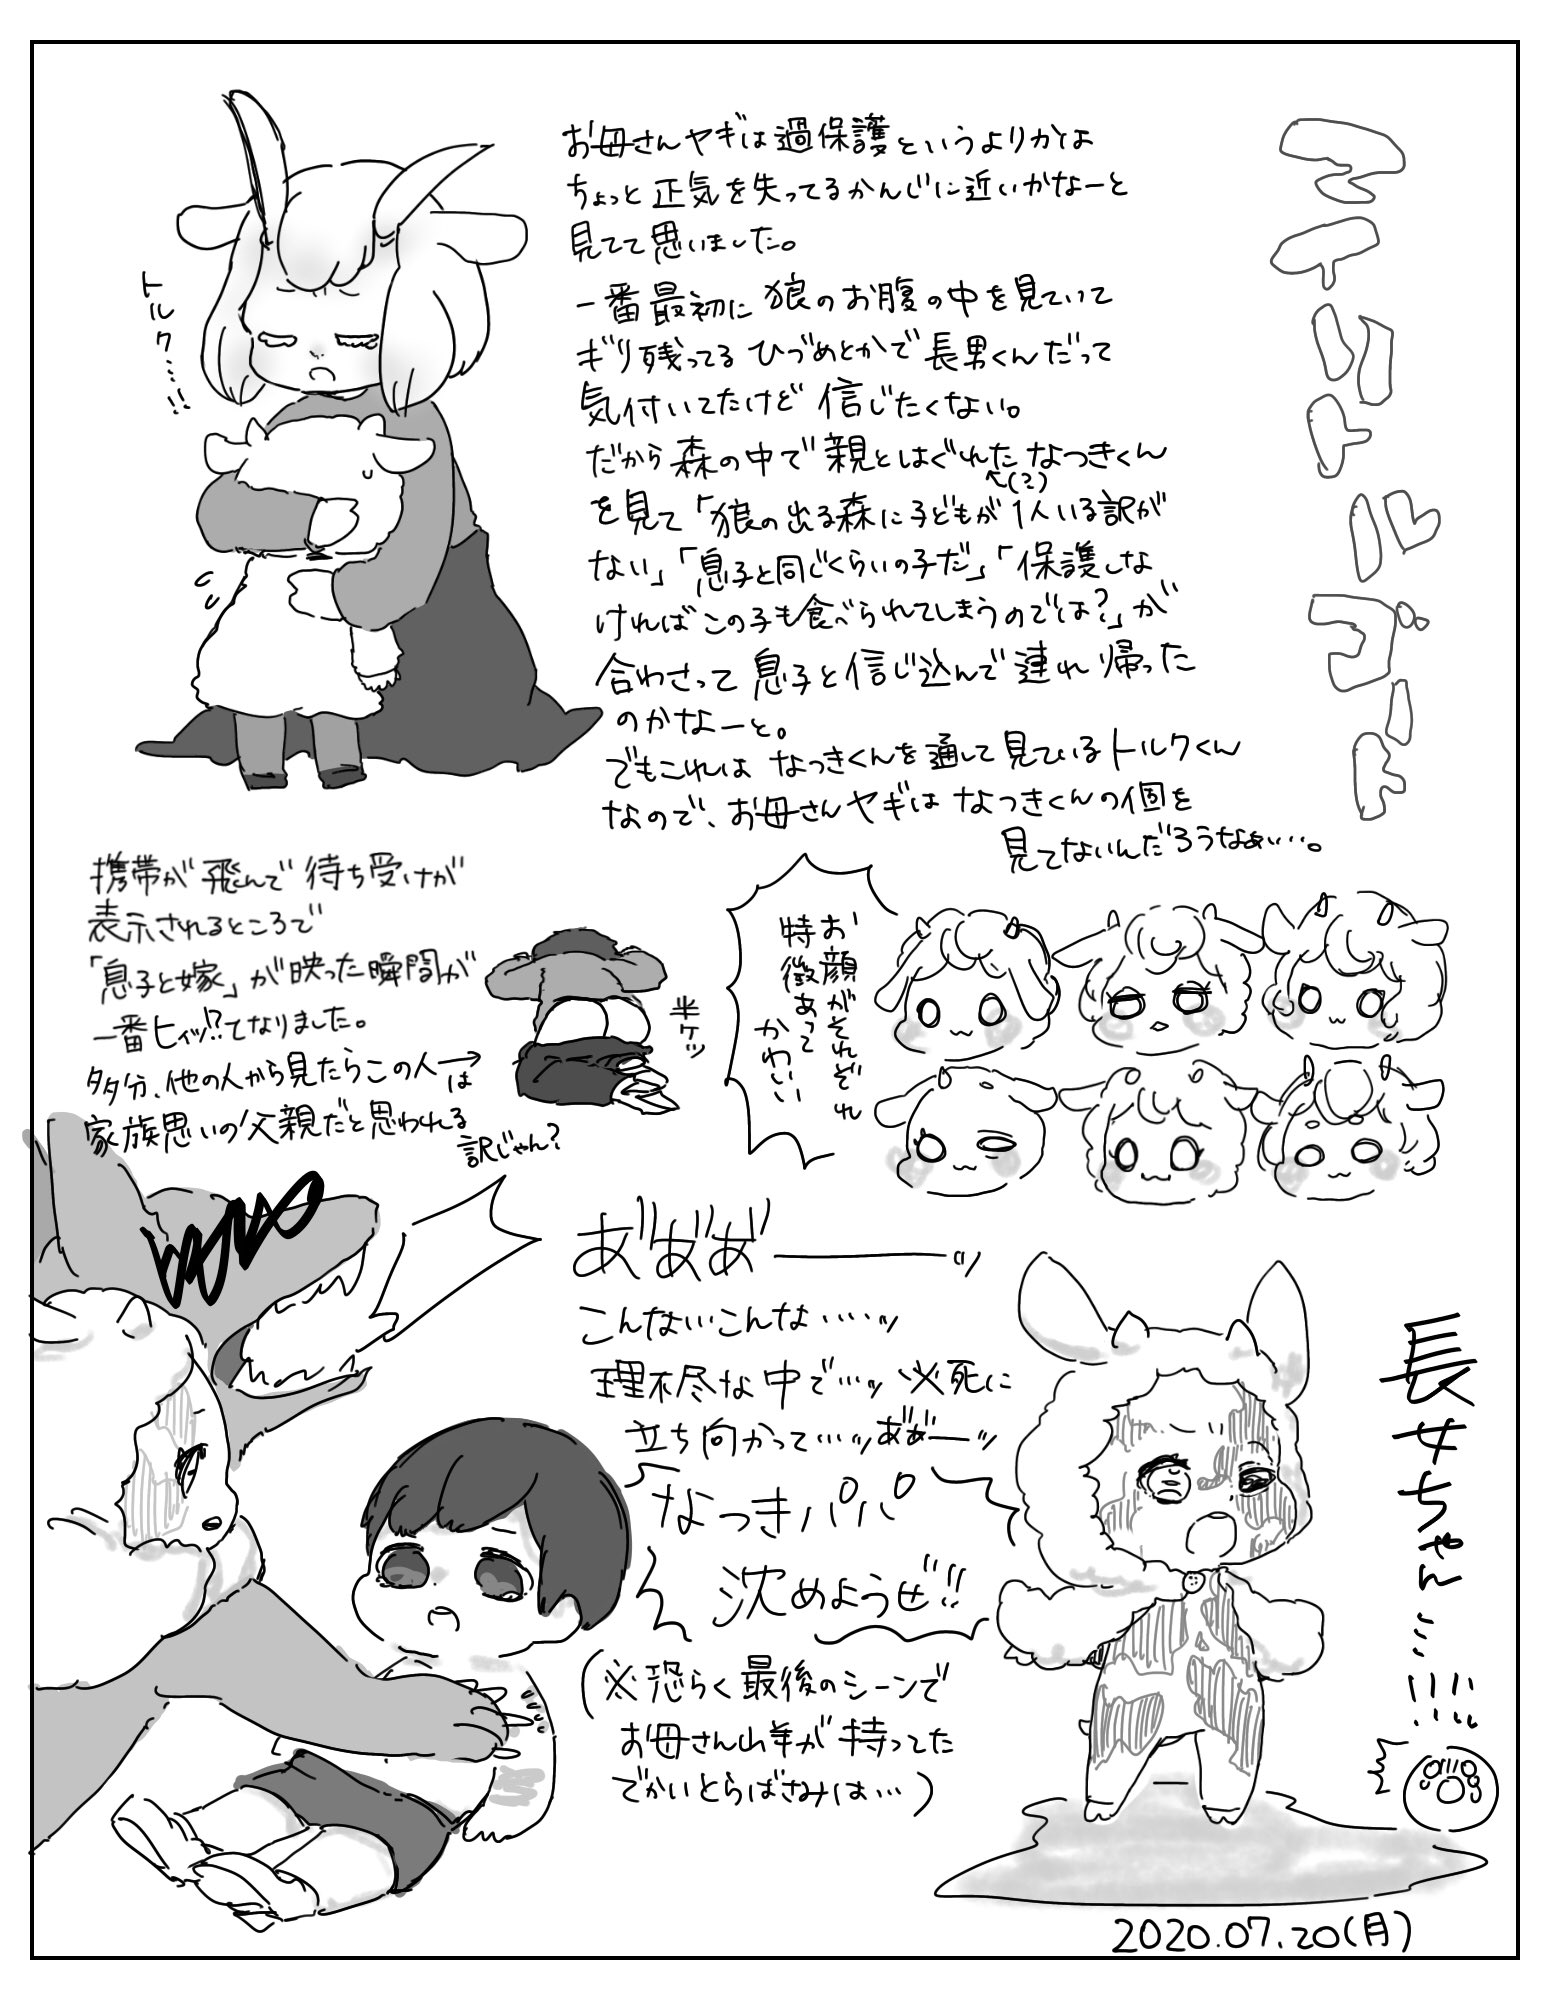 マイリトルゴート
お母さんヤギは過保護というよりかは
ちょっと正気を失ってるかんじに近いかなーと
見てて思いました。
一番最初に狼のお腹の中を見ていて
ギリ残ってるひづめとかで長男くんだって
気付いてたけど信じたくない。
だから森の中で親とはぐれたなつきくん
(?)
を見て「狼の出る森に子どもが1人いる訳が
ない」「息子と同じくらいの子だ」「保護しな
ければこの子も食べられてしまうのでは?」が
合わさって息子と信じ込んで連れ帰った
のかなーと。
でもこれはなつきくんを通して見ているトルクくん
なので、お母さんヤギはなつきくんの個を
見てないんだろうなぁ…。
トルク…!!
携帯が飛んで待ち受けが
表示されるところで
「息子と嫁」が映った瞬間が
一番ヒィッ!?てなりました。
多分、他の人から見たらこの人→は
家族思いの父親だと思われる
訳じゃん?
半ケツ
お顔がそれぞれ
特徴あって
かわいい
あ゛あ゛あ゛ーーッ
こんな…こんな……ッ
理不尽な中で…ッ必死に
立ち向かって…ッあ゛あ゛ーッ
なつきパパ
沈めようぜ!!
(※恐らく最後のシーンで
お母さん山羊が持ってた
でかいとらばさみは…)
長女ちゃん……!!!!
2020.07.20(月)